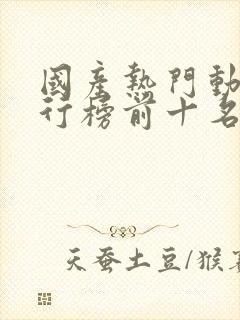 國產熱門動
行榜前十名
天蚕土豆/猴